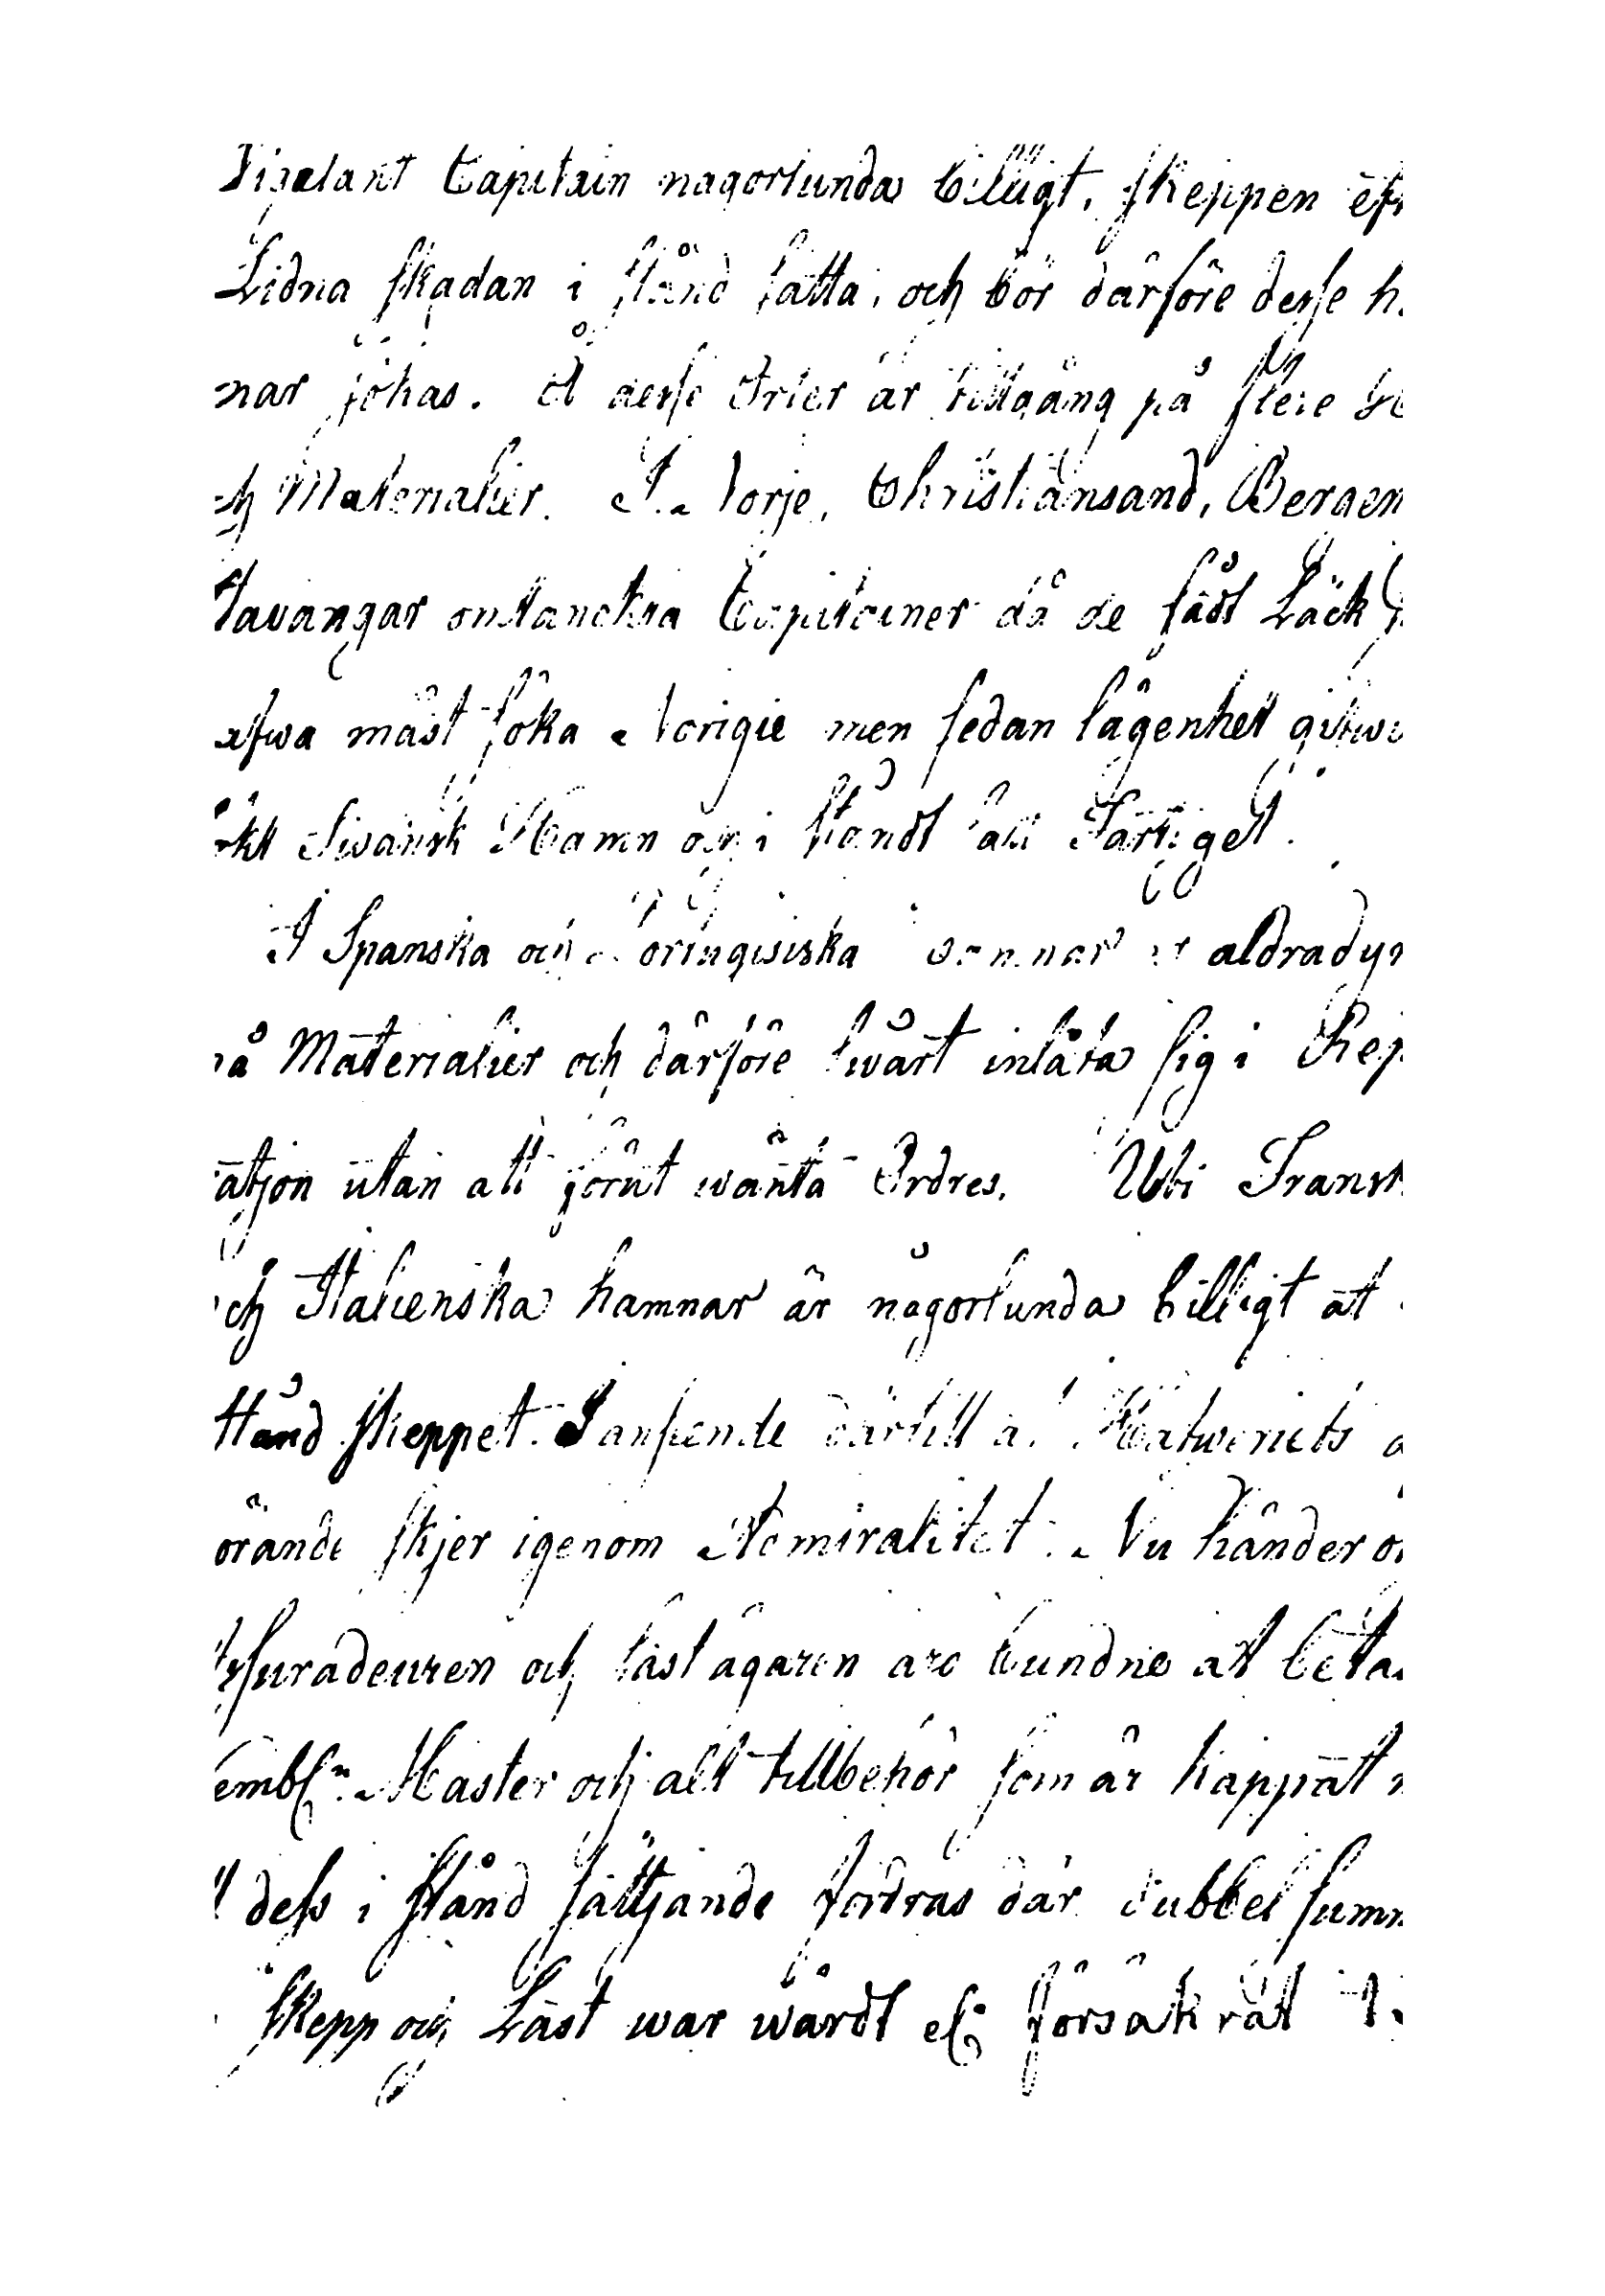 Vigelant Capitain någorlunda billigt, skeppen eft
Lidna skadan i stånd satta, och bör därföre desse h
nar sökas. Å desse Orter är tillgång på flere
ch Materialier. I Norje, Christiansand, Bergen
Stavangar omtänckta Capitainer då de fådt Läck
afwa mäst söka Norigie men sedan lägenhet gifwi
sökt Swänsk Hamn och iståndt satt Färtyget.
I Spanska och Portugisiska hamnar är aldradyr
på Materialier och därföre swårt inlåta sig i Rep
ratjon utan att förut wänta Ordres. Uti Fransk
och Italienska hamnar är någorlunda billigt at
stånd skeppet. I anseende därtill at Hafweriets
örande skjer igenom Admiralitet. Nu händer
Assuradeuren och lastägaren äro bundne at beta
embl:n Master och alt tillbehör som är kappat
dess i stånd sättjande fordras där dubbel sum
Skepp och Last war wärdt el: försäkrat